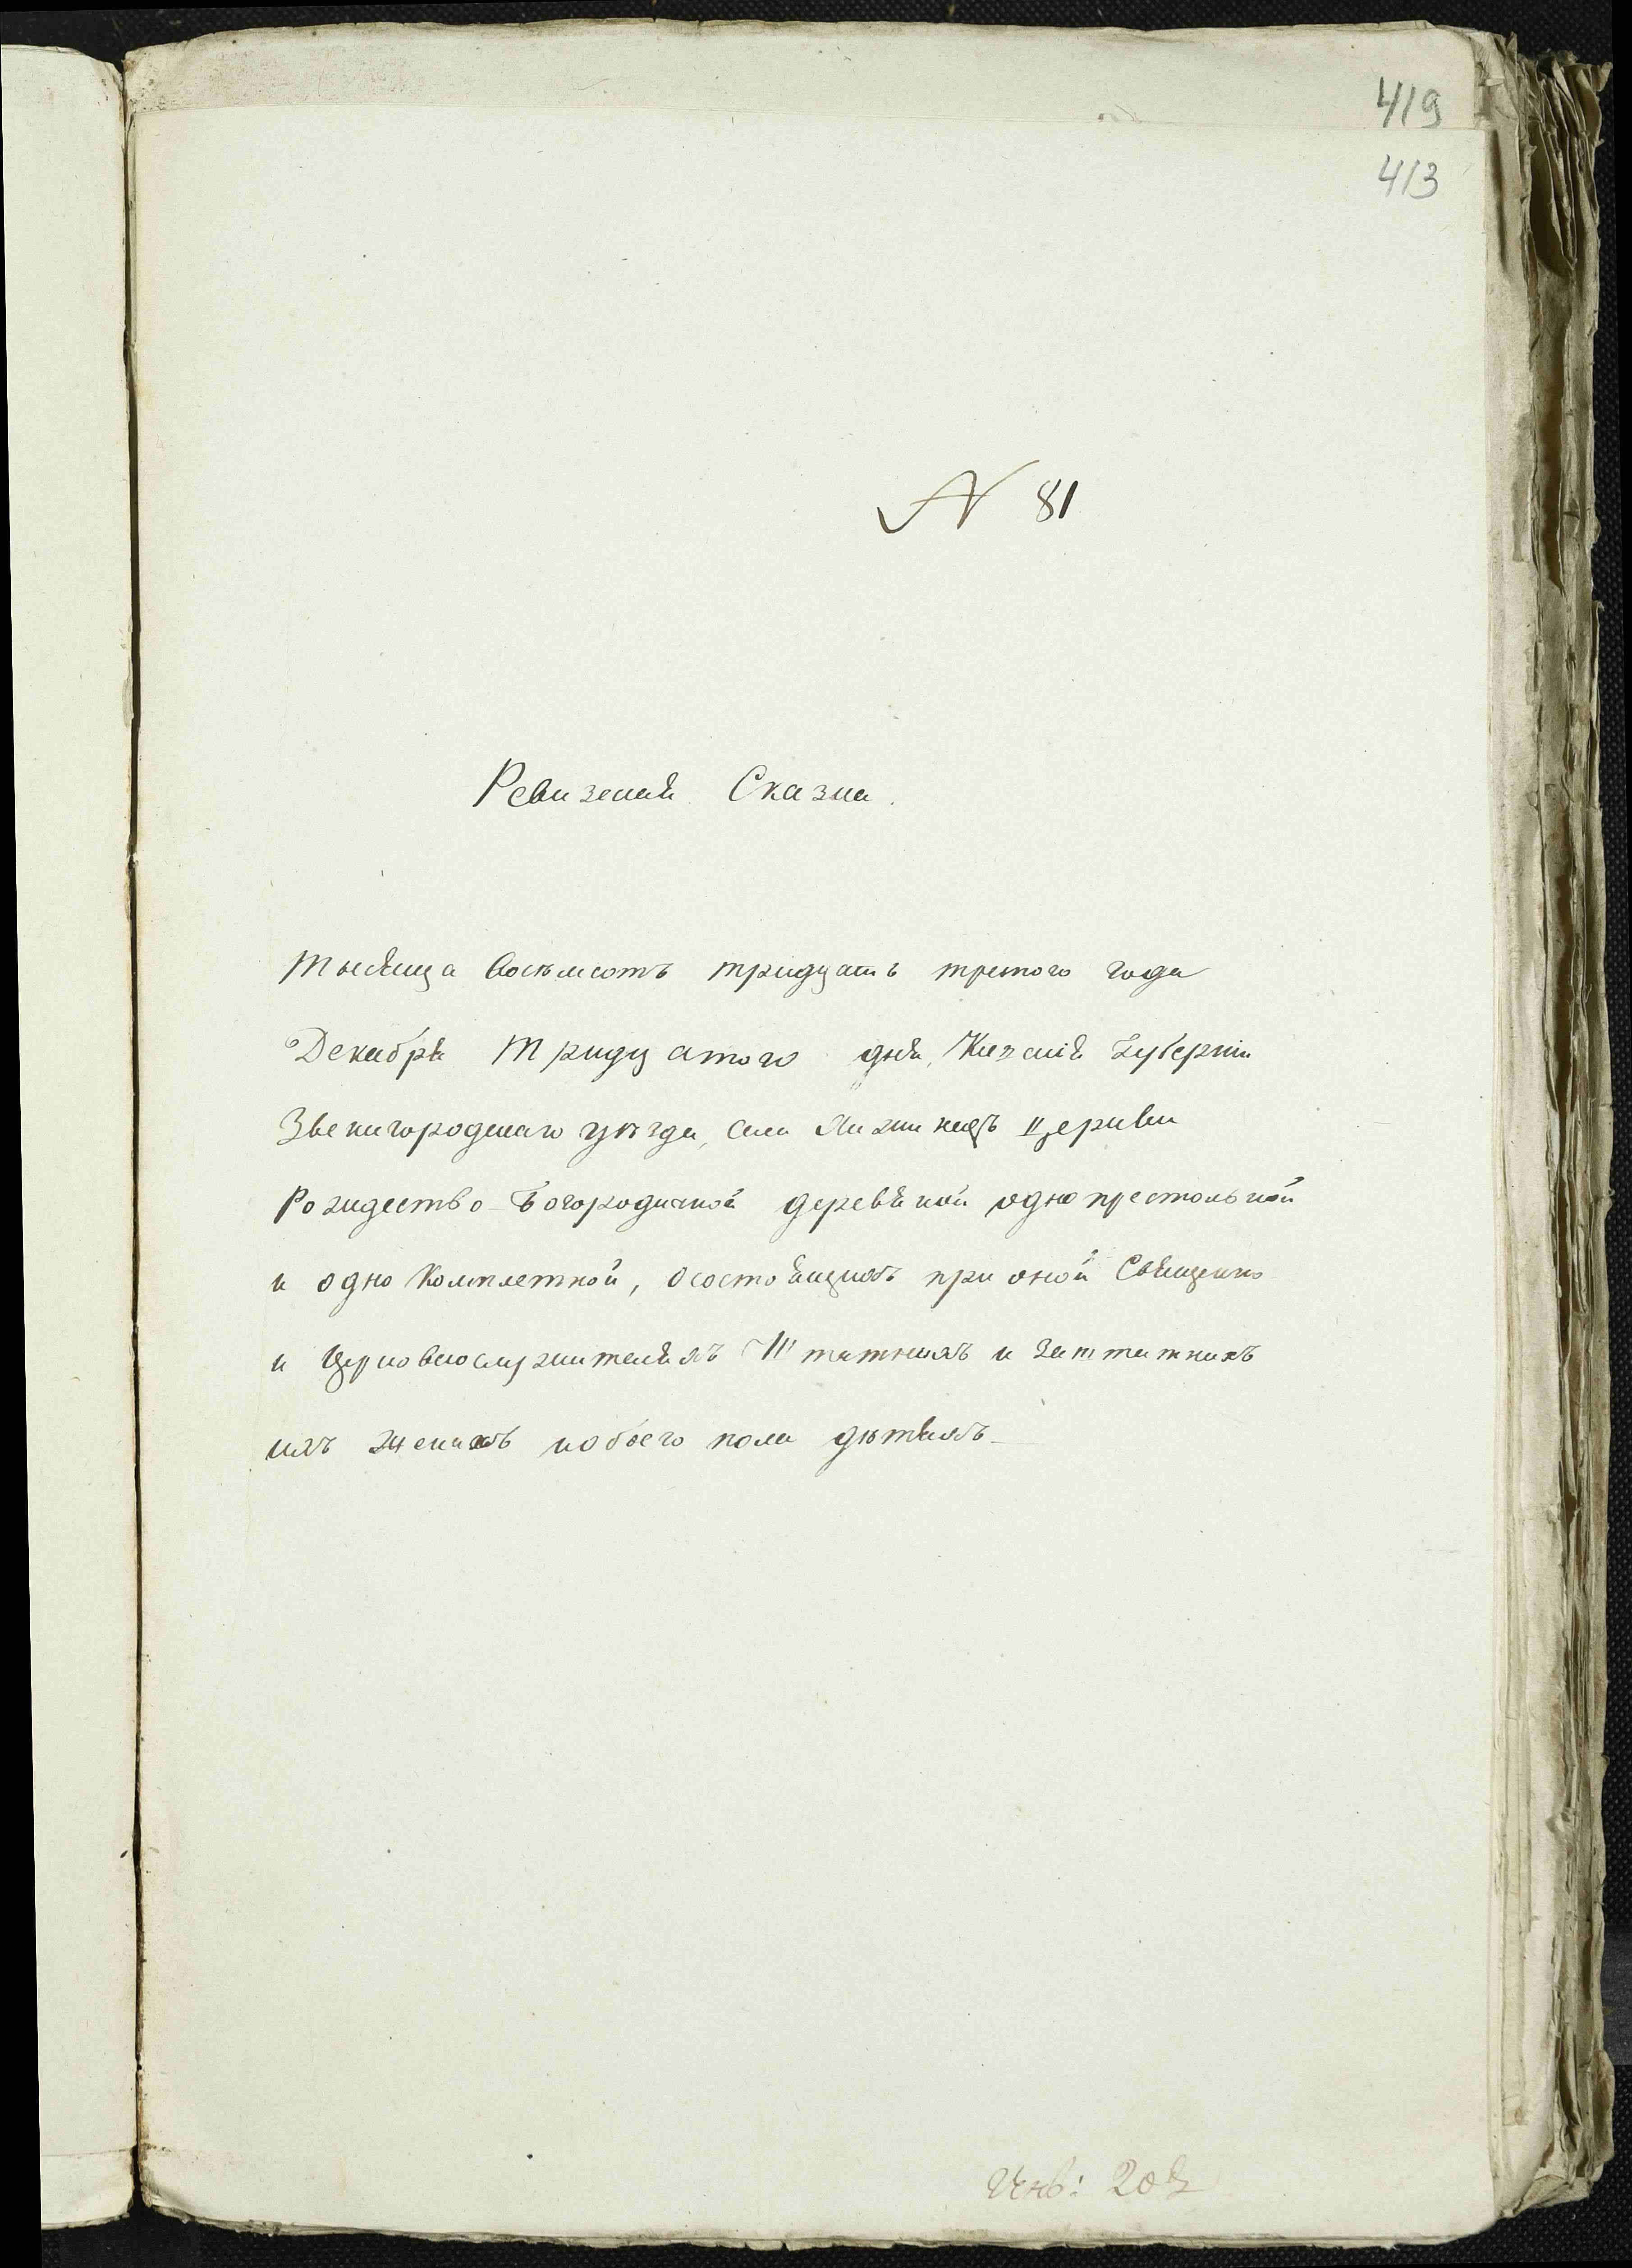 419
413
N 81
Ревизская Сказка.
Тысяща восемсотъ тридцать третого года
Декабря Тридцатого дня, Киевскія Губерніи
Звенигородскаго уѣзда, села церкви
Рождество-Богородичной деревяной однопрестольной
и однокомплетной, осостоящихъ при оной Священно
и Церковнослужителяхъ Штатныхъ и заштатныхъ
ихъ женахъ иобоего пола дѣтяхъ